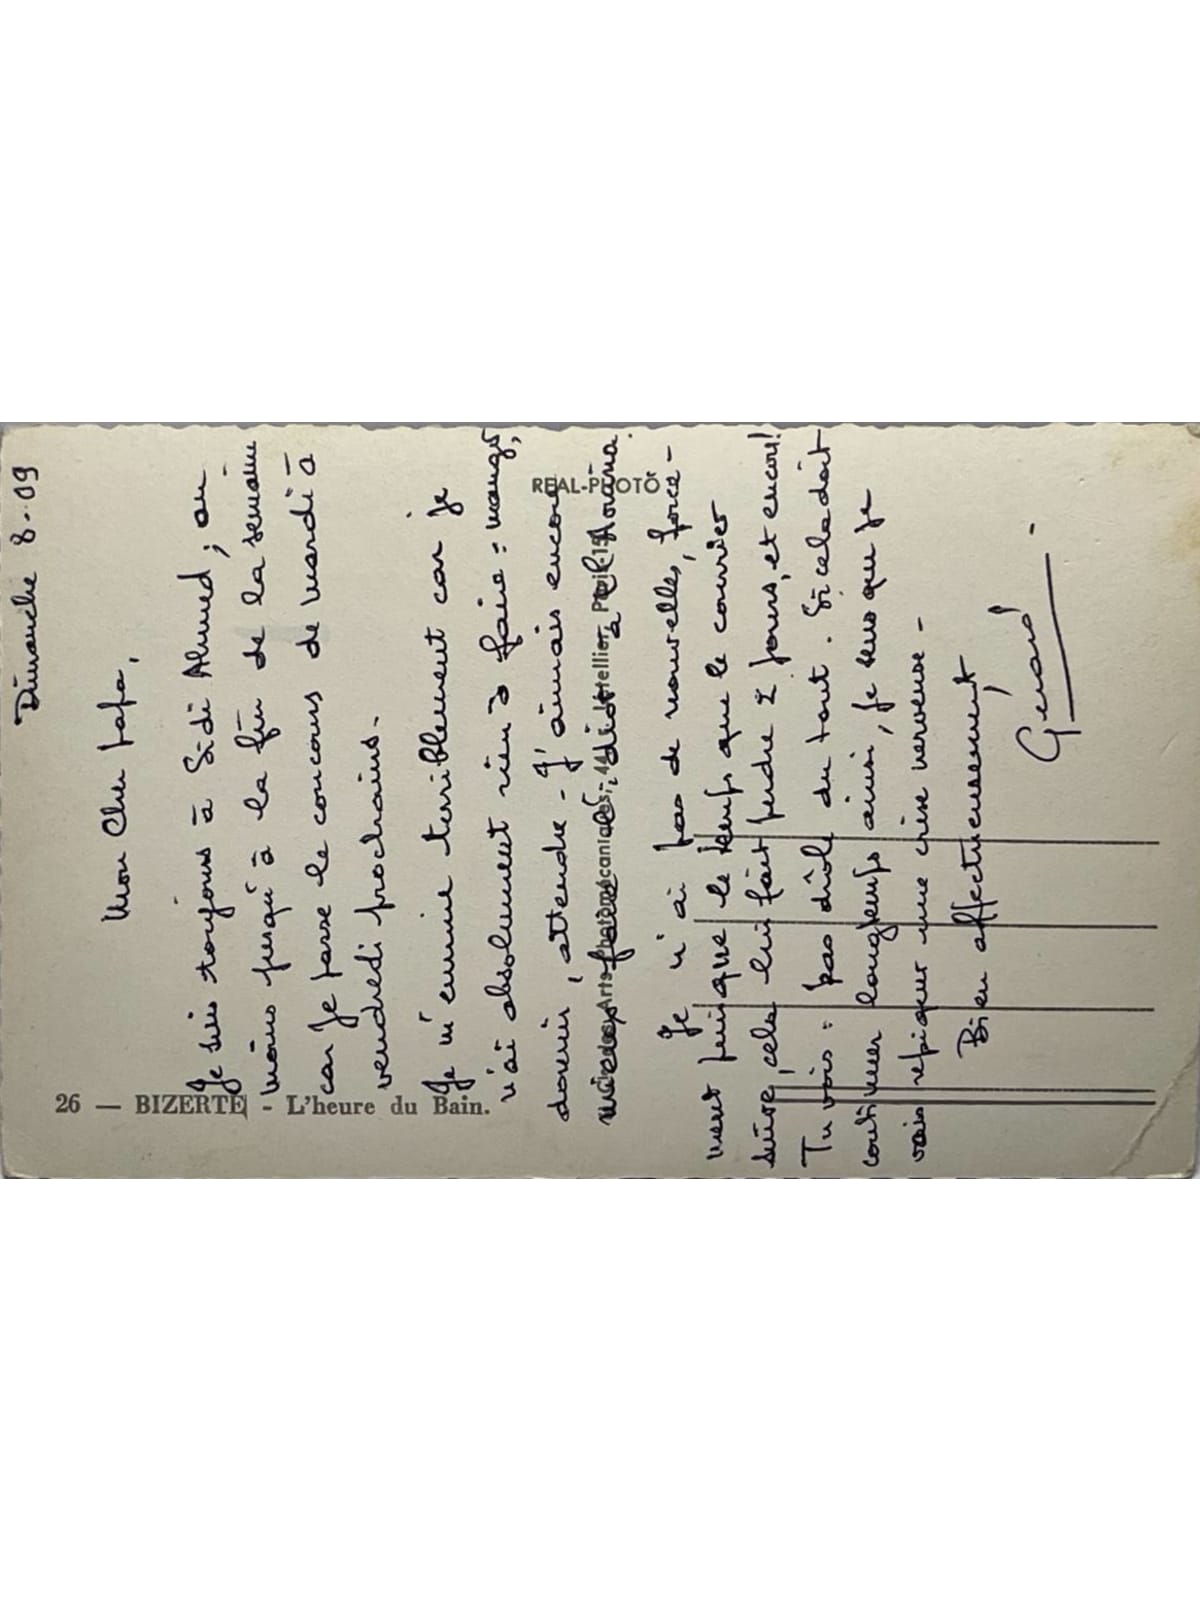 Dimanche 8-09
Mon Cher papa,
Je suis toujours à Sidi Ahmed ; au
moins jusqu'à la fin de la semaine
car je passe le concours de mardi à
vendredi prochains.
Je m'ennuie terriblement car je
n'ai absolument rien à faire : manger,
dormir, attendre - J'aimais encore
mieux faire l'idiot à el Aouina.
Je n'ai pas de nouvelles, force-
ment puisque le temps que le courrier
suive, cela lui fait perdre 2 jours, et encore!
Tu vois : pas drôle du tout. Si cela doit
continuer longtemps ainsi, je sens que je
vais repiquer une crise nerveuse -
Bien affectueusement,
Gérard
26 — BIZERTE - L'heure du Bain.
REAL-PHOTO
Arts Photomécaniques, 44, Letellier, Paris-15